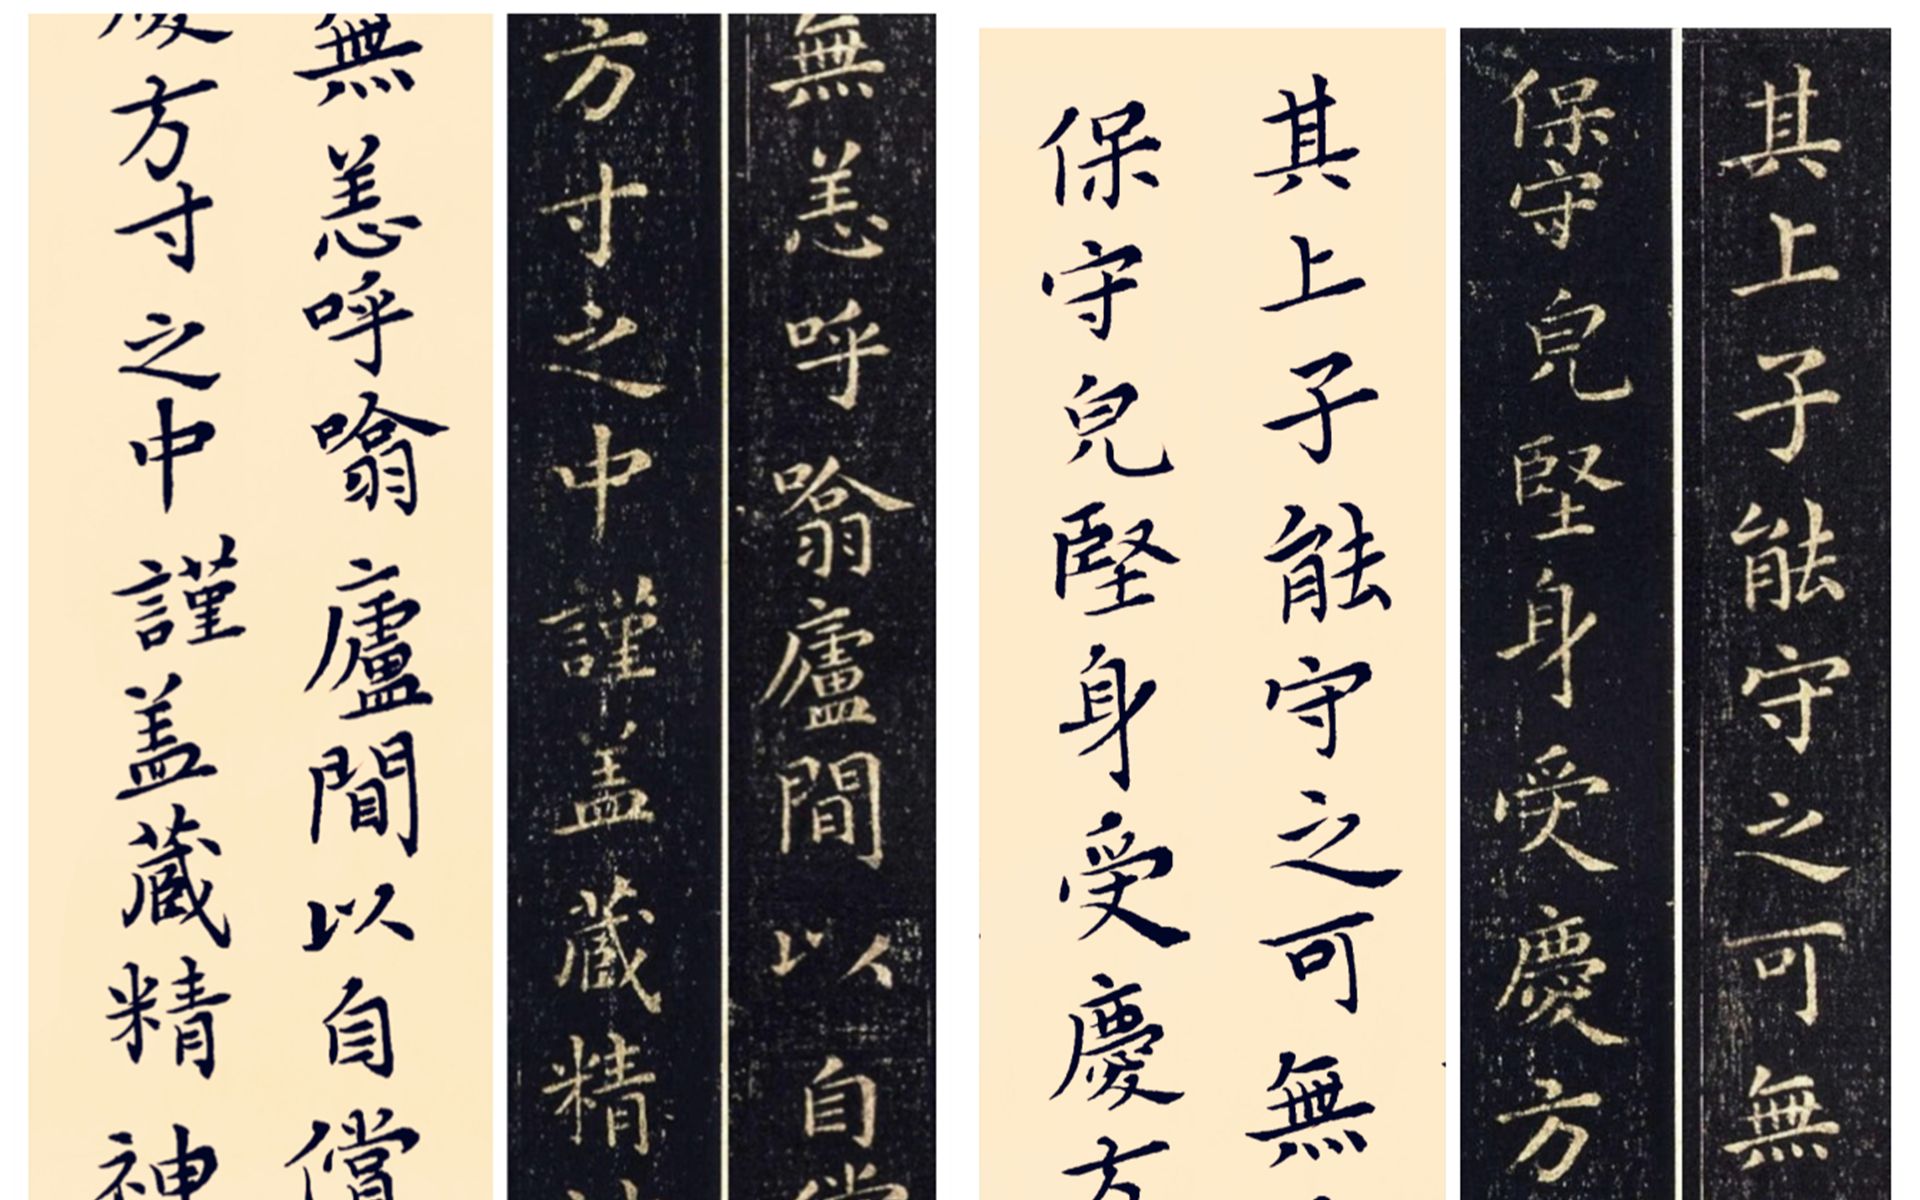 其上子能守之可無
保守皃堅身受慶方
其上子能守之可無
保守皃堅身受慶方
無恙呼噏廬間以自償
方寸之中謹盖藏精
無恙呼噏廬間以自償
慶方寸之中謹盖藏精神